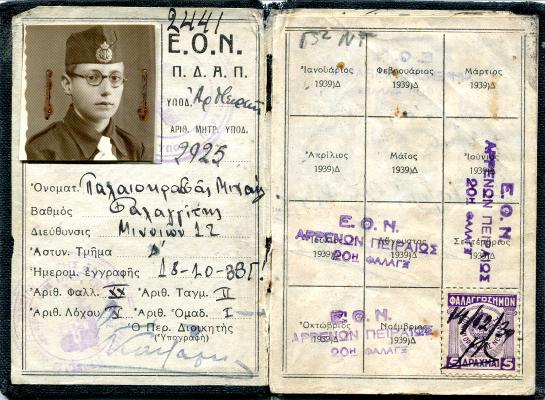 2441
Ε.Ο.Ν.
Π.Δ.Α.Π.
ΥΠΟΔ.
ΑΡΙΘ. ΜΗΤΡ. ΥΠΟΔ.
2925
Ὀνοματ. Παλαιοκρασᾶς
Βαθμός Φαλαγγίτης
Διεύθυνσις Μινώων 12
Ἀστυν. Τμῆμα Δ'
Ἡμερομ. ἐγγραφῆς 18-10-38
Ἀριθ. Φαλλ. XX Ἀριθ. Ταγμ. II
Ἀριθ. Λόχου IV Ἀριθ. Ὁμαδ. I
Ὁ Περ. Διοικητής
(Ὑπογραφή)
Ε.Ο.Ν.
Ἰανουάριος 1939)Δ
Φεβρουάριος 1939)Δ
Μάρτιος 1939)Δ
Ἀπρίλιος 1939)Δ
Μάϊος 1939)Δ
Ἰούνιος 1939)Δ
Ἰούλιος 1939)Δ
Αὔγουστος 1939)Δ
Σεπτέμβριος 1939)Δ
Ὀκτώβριος 1939)Δ
Νοέμβριος 1939)Δ
Ε.Ο.Ν.
ΑΡΡΕΝΩΝ ΠΕΙΡΑΙΩΣ
20Η ΦΑΛΑΓΞ
Ε.Ο.Ν.
ΑΡΡΕΝΩΝ ΠΕΙΡΑΙΩΣ
20Η ΦΑΛΑΓΞ
Ε.Ο.Ν
ΑΡΡΕΝΩΝ ΠΕΙΡΑΙΩΣ
20Η ΦΑΛΑΓΞ
5 ΔΡΑΧΜΑΙ 5